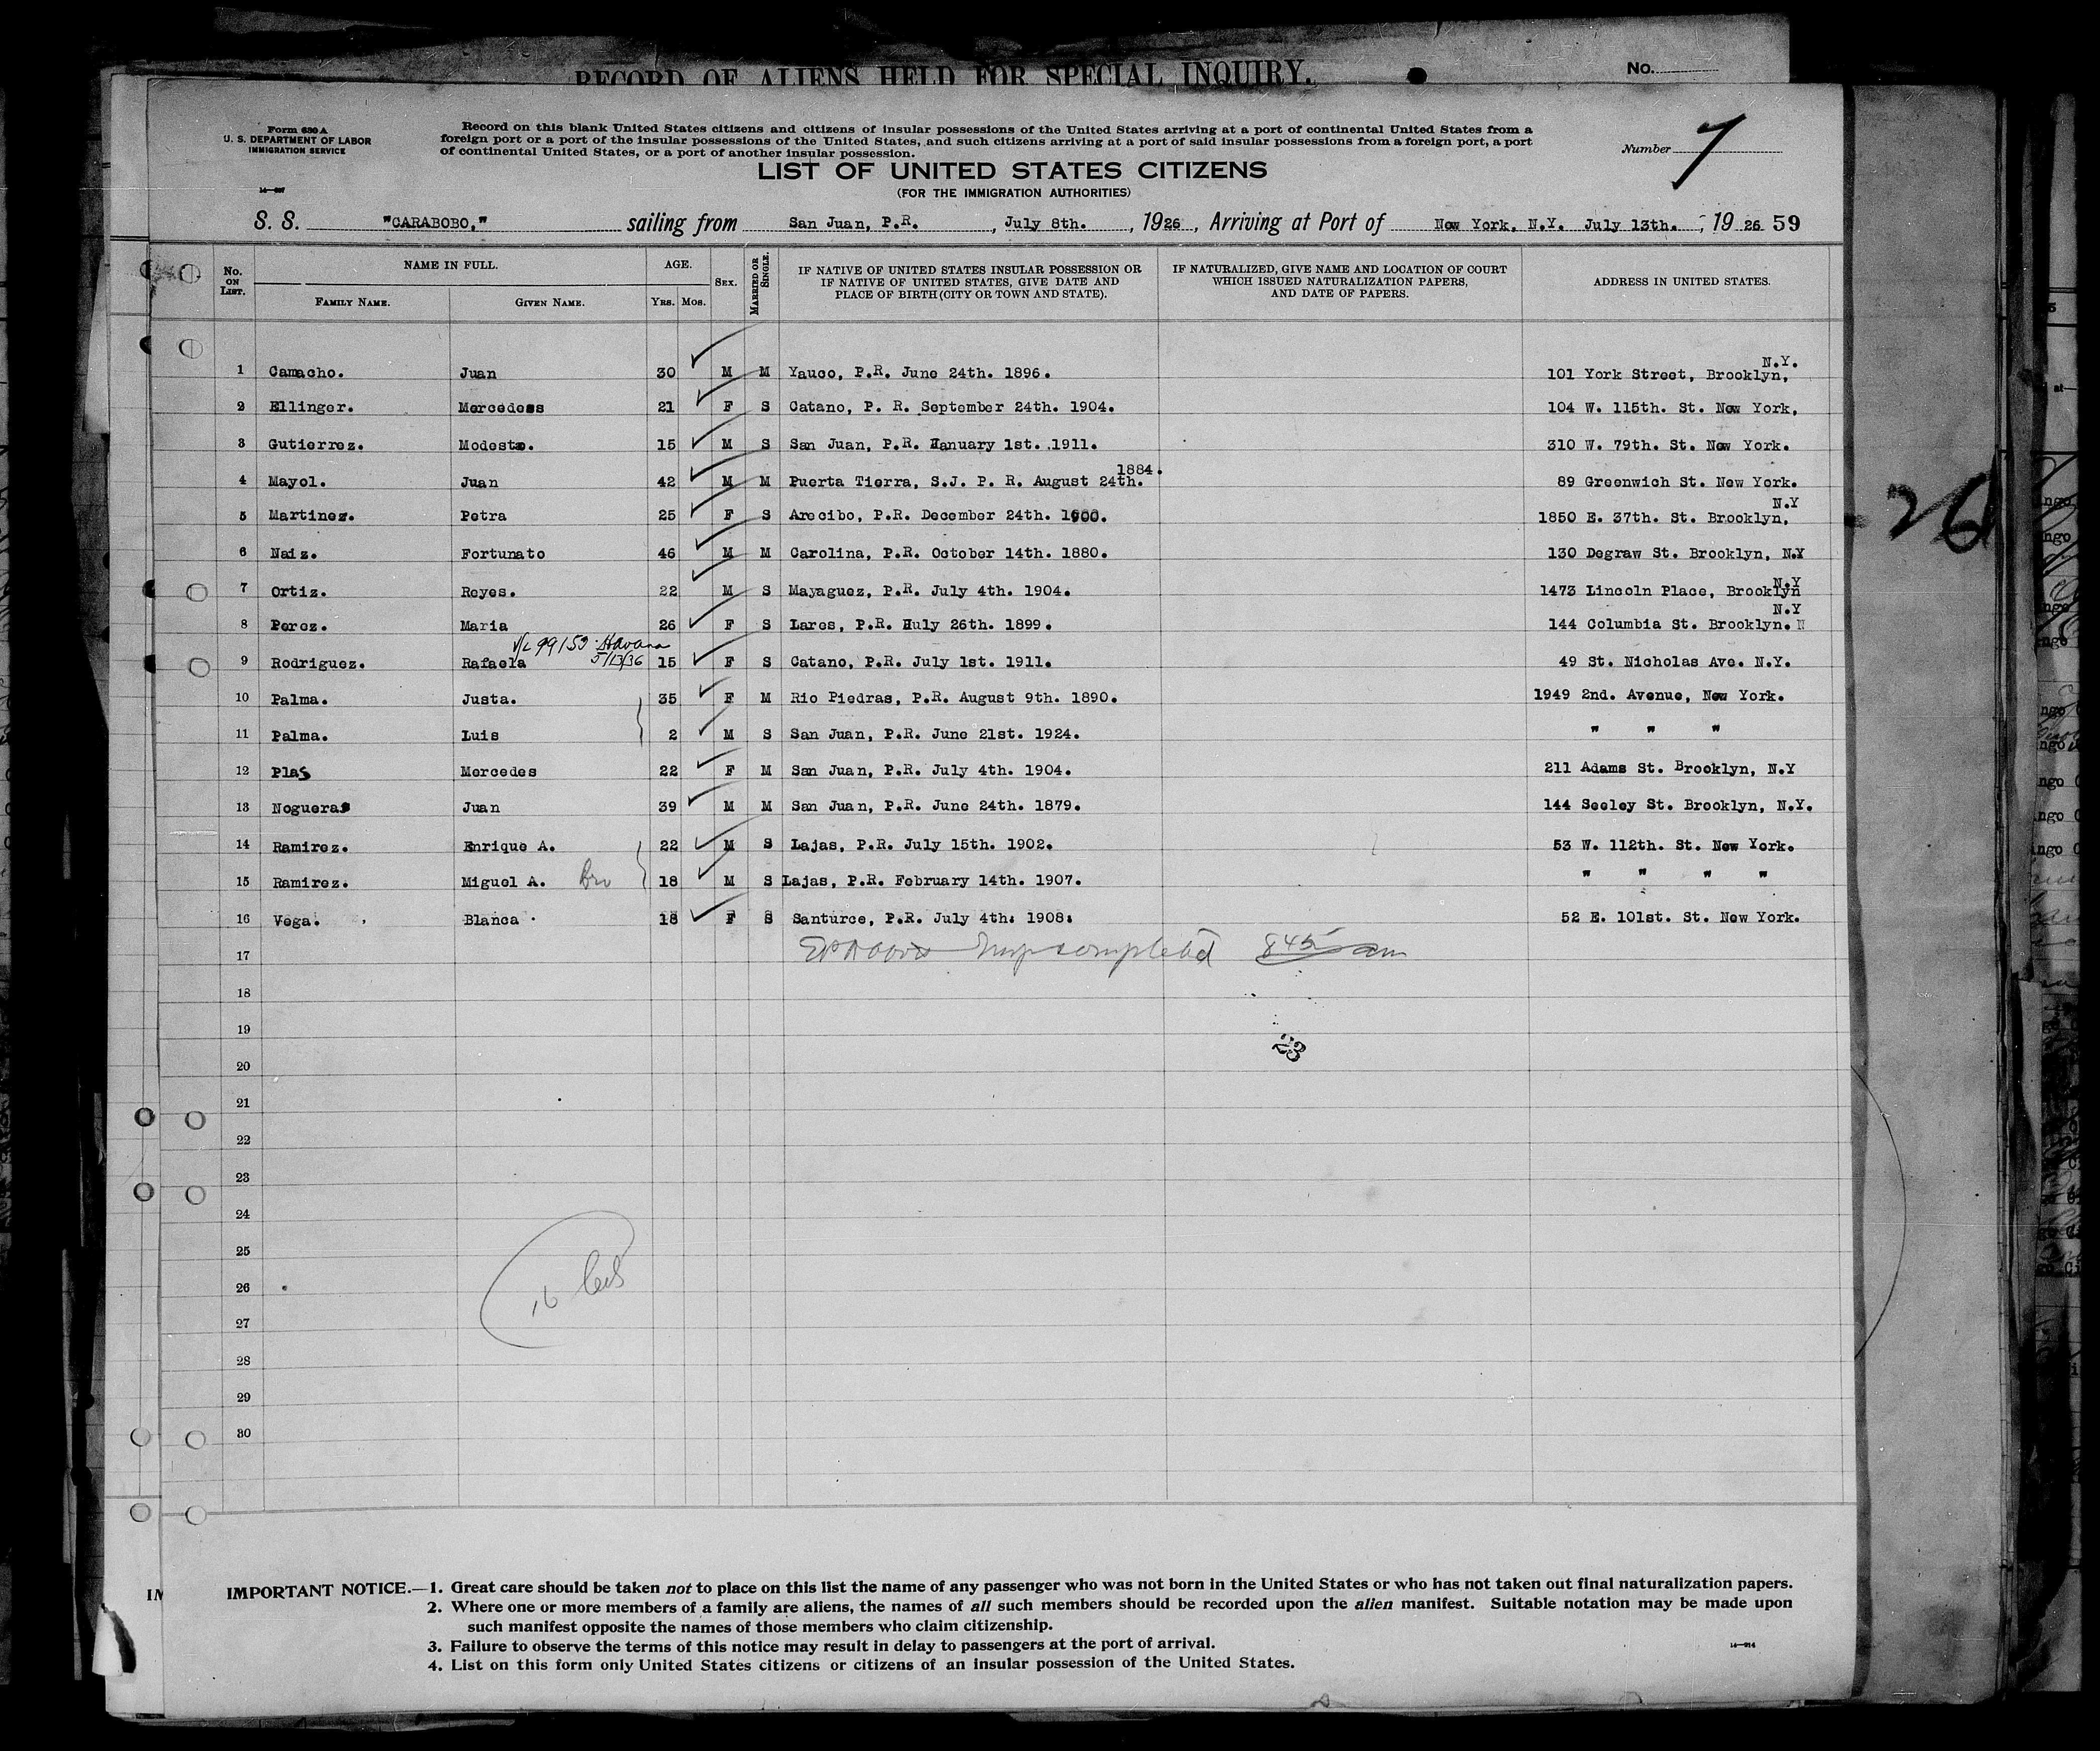 RECORD OF ALIENS HELD FOR SPECIAL INQUIRY.
No.
Form 630 A
U. S. DEPARTMENT OF LABOR
IMMIGRATION SERVICE
Record on this blank United States citizens and citizens of insular possessions of the United States arriving at a port of continental United States from a
foreign port or a port of the insular possessions of the United States, and such citizens arriving at a port of said insular possessions from a foreign port, a port
of continental United States, or a port of another insular possession.
Number 7
LIST OF UNITED STATES CITIZENS
(FOR THE IMMIGRATION AUTHORITIES)
S. S. "CARABOBO," sailing from San Juan, P.R. , July 8th. , 1926 , Arriving at Port of New York, N.Y. July 13th. , 19 26 59
No. ON LIST. NAME IN FULL. FAMILY NAME. GIVEN NAME. AGE. YRS. MOS. SEX. MARRIED OR SINGLE. IF NATIVE OF UNITED STATES INSULAR POSSESSION OR IF NATIVE OF UNITED STATES, GIVE DATE AND PLACE OF BIRTH (CITY OR TOWN AND STATE). IF NATURALIZED, GIVE NAME AND LOCATION OF COURT WHICH ISSUED NATURALIZATION PAPERS, AND DATE OF PAPERS. ADDRESS IN UNITED STATES.
1 Camacho. Juan 30 M M Yauco, P.R. June 24th. 1896. 101 York Street, Brooklyn, N.Y.
2 Ellinger. Mercedess 21 F S Catano, P. R. September 24th. 1904. 104 W. 115th. St. New York,
3 Gutierrez. Modesto. 15 M S San Juan, P.R. Hanuary 1st. 1911. 310 W. 79th. St. New York.
4 Mayol. Juan 42 M M Puerta Tierra, S.J. P. R. August 24th. 1884. 89 Greenwich St. New York.
5 Martinez. Petra 25 F S Arecibo, P.R. December 24th. 1900. 1850 E. 37th. St. Brooklyn, N.Y
6 Naiz. Fortunato 46 M M Carolina, P.R. October 14th. 1880. 130 Degraw St. Brooklyn, N.Y
7 Ortiz. Reyes. 22 M S Mayaguez, P.R. July 4th. 1904. 1473 Lincoln Place, Brooklyn N.Y
8 Perez. Maria 26 F S Lares, P.R. Huly 26th. 1899. 144 Columbia St. Brooklyn. N.Y
V/L 99153 Havana
5/13/36
9 Rodriguez. Rafaela 15 F S Catano, P.R. July 1st. 1911. 49 St. Nicholas Ave. N.Y.
10 Palma. Justa. 35 F M Rio Piedras, P.R. August 9th. 1890. 1949 2nd. Avenue, New York.
11 Palma. Luis 2 M S San Juan, P.R. June 21st. 1924. " " "
12 Plas Mercedes 22 F M San Juan, P.R. July 4th. 1904. 211 Adams St. Brooklyn, N.Y
13 Nogueras Juan 39 M M San Juan, P.R. June 24th. 1879. 144 Seeley St. Brooklyn, N.Y.
14 Ramirez. Enrique A. 22 M S Lajas, P.R. July 15th. 1902. 53 W. 112th. St. New York.
15 Ramirez. Miguel A. Bro 18 M S Lajas, P.R. February 14th. 1907. " " " "
16 Vega. Blanca 18 F S Santurce, P.R. July 4th. 1908. 52 E. 101st. St. New York.
17 completed 845 am
18
19
23
20
21
22
23
24
25
26
27
28
29
30
26
IMPORTANT NOTICE.—1. Great care should be taken not to place on this list the name of any passenger who was not born in the United States or who has not taken out final naturalization papers.
2. Where one or more members of a family are aliens, the names of all such members should be recorded upon the alien manifest. Suitable notation may be made upon
such manifest opposite the names of those members who claim citizenship.
3. Failure to observe the terms of this notice may result in delay to passengers at the port of arrival.
4. List on this form only United States citizens or citizens of an insular possession of the United States.